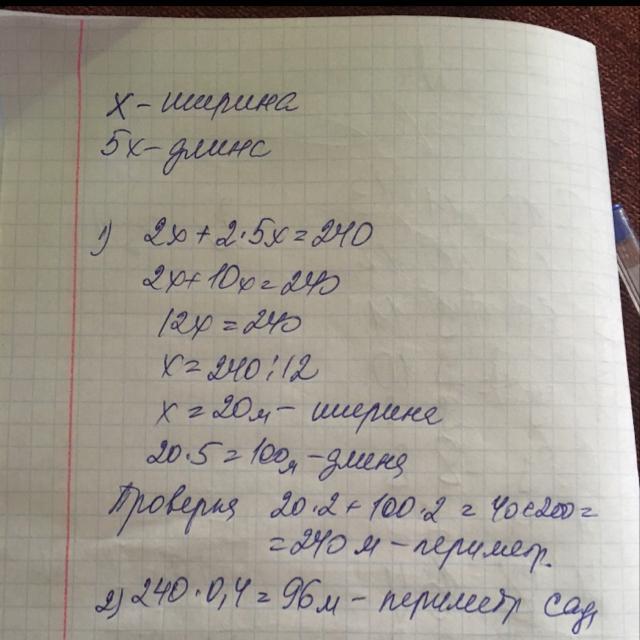 x - ширина
5x - длина
1) 2x + 2·5x = 240
2x + 10x = 240
12x = 240
x = 240:12
x = 20м - ширина
20·5 = 100м - длина
Проверка 20·2 + 100·2 = 40+200 =
= 240 м - периметр.
2) 240·0,4 = 96м - периметр сад